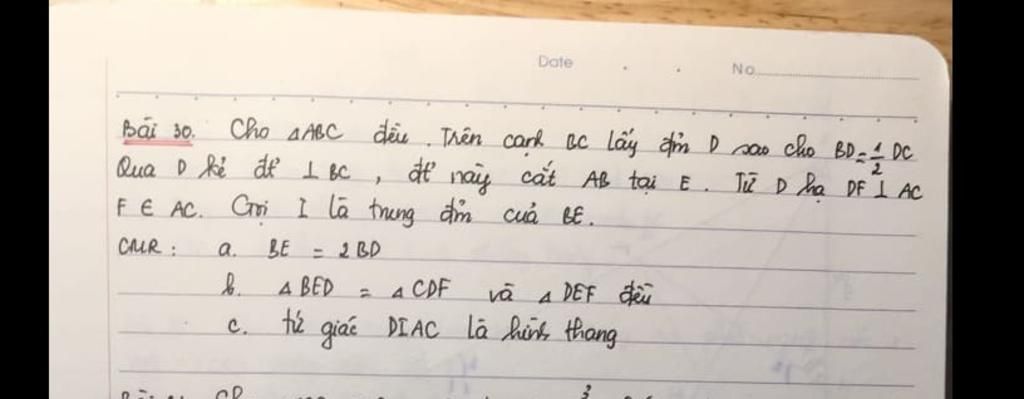 Date . . No
Bài 30. Cho ΔABC đều. Trên cạnh BC lấy đm D sao cho BD = 1/2 DC
Qua D kẻ đt ⊥ BC, đt này cắt AB tại E. Từ D hạ DF ⊥ AC
F ∈ AC. Gọi I là trung đm của BE.
CMR: a. BE = 2BD
b. Δ BED = Δ CDF và Δ DEF đều
c. tứ giác DIAC là hình thang